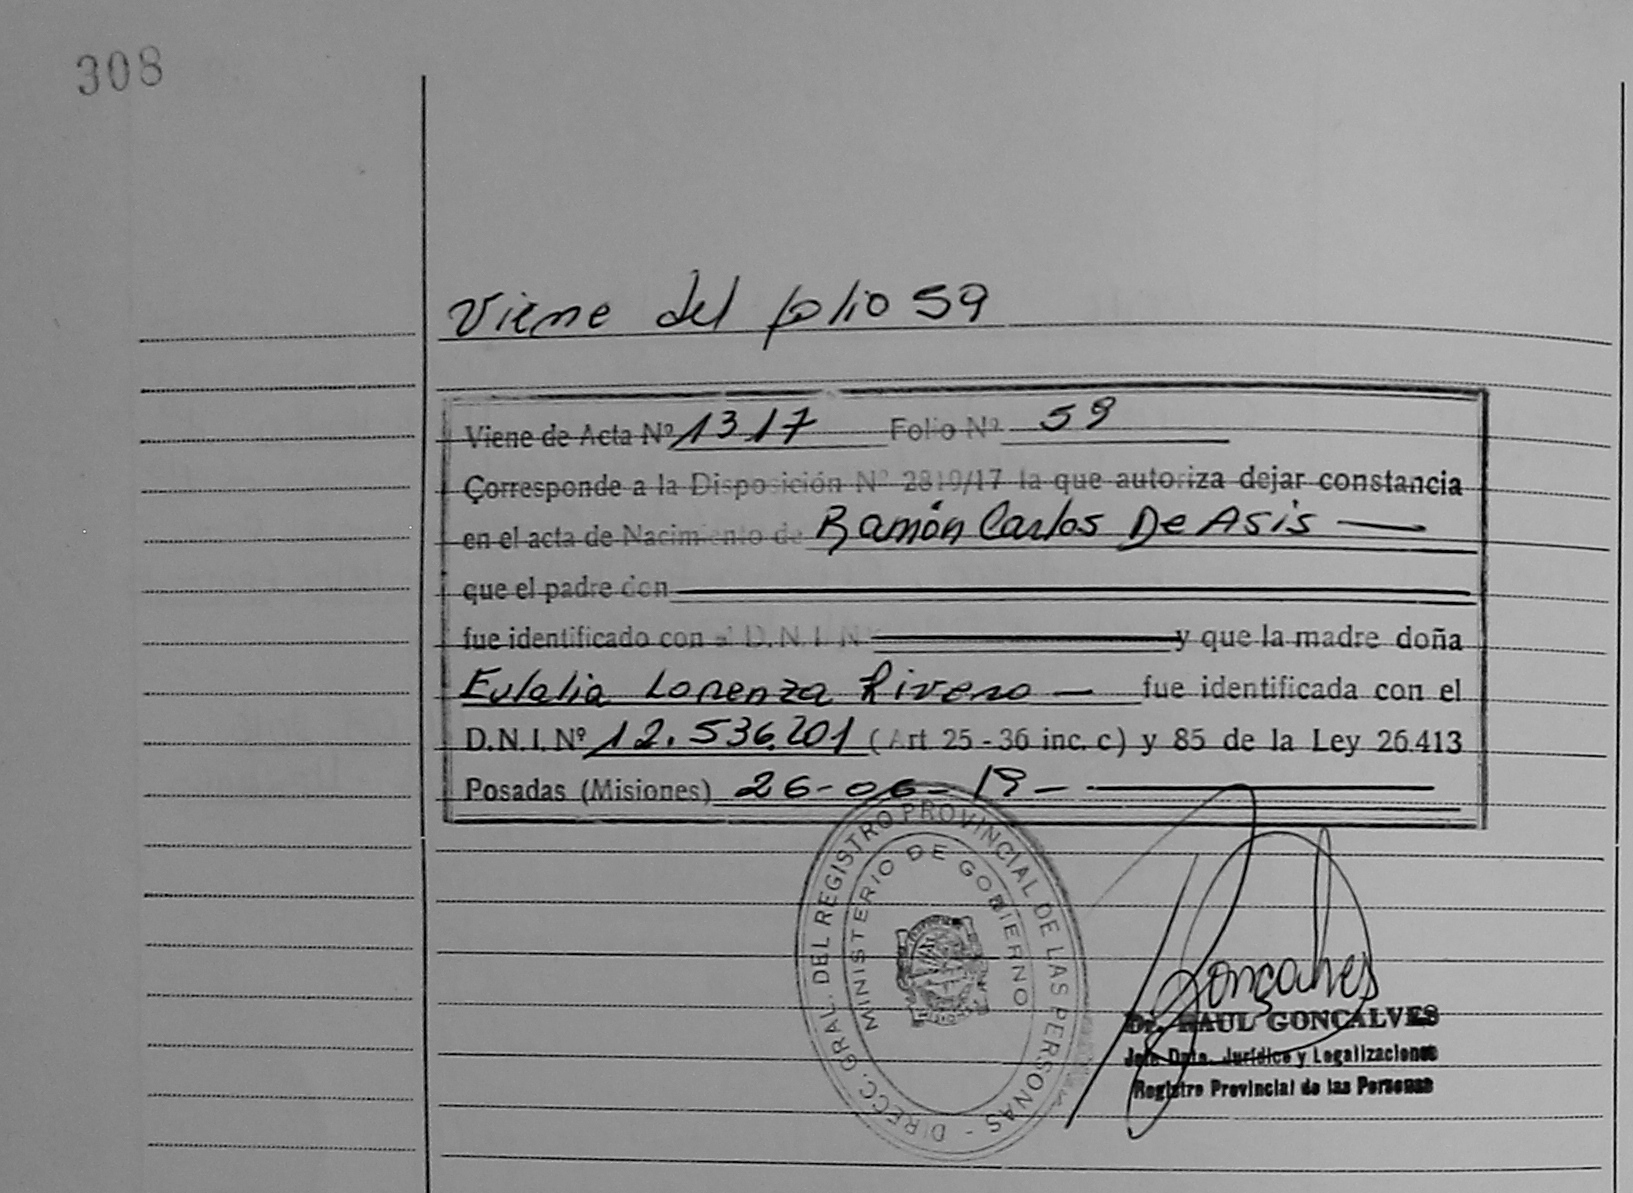 308
Viene del folio 59
Viene de Acta Nº 1317 Folio Nº 59
Corresponde a la Disposición Nº 2819/17 la que autoriza dejar constancia
en el acta de Nacimiento de Ramón Carlos De Asis —
que el padre don
fue identificado con el D.N.I. Nº y que la madre doña
Eulalia Lorenza Rivero — fue identificada con el
D.N.I. Nº 12.536.201 (Art 25 - 36 inc. c) y 85 de la Ley 26.413
Posadas (Misiones) 26-06-19 —
DIRECC. GRAL. DEL REGISTRO PROVINCIAL DE LAS PERSONAS -
MINISTERIO DE GOBIERNO
Gonçalves
Dr. RAUL GONÇALVES
Jefe Dpto. Jurídico y Legalizaciones
Registro Provincial de las Personas